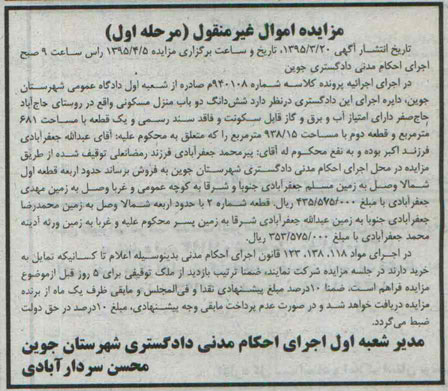 مزایده اموال غیرمنقول (مرحله اول)
تاریخ انتشار آگهی ۱۳۹۵/۳/۲۰، تاریخ و ساعت برگزاری مزایده ۱۳۹۵/۴/۵ راس ساعت ۹ صبح
اجرای احکام مدنی دادگستری جوین
در اجرای اجرائیه پرونده کلاسه شماره ۹۴۰۱۰۸م صادره از شعبه اول دادگاه عمومی شهرستان
جوین، دایره اجرای این دادگستری درنظر دارد شش‌دانگ دو باب منزل مسکونی واقع در روستای حاج‌آباد
حاج‌صفر دارای امتیاز آب و برق و گاز قابل سکونت و فاقد سند رسمی و یک قطعه با مساحت ۶۸۱
مترمربع و قطعه دوم با مساحت ۹۳۸/۱۵ مترمربع را که متعلق به محکوم علیه: آقای عبدالله جعفرآبادی
فرزند اکبر بوده و به نفع محکوم له آقای: پیرمحمد جعفرآبادی فرزند رمضانعلی توقیف شده از طریق
مزایده در محل اجرای احکام مدنی دادگستری شهرستان جوین به فروش برساند حدود اربعه قطعه اول
شمالا وصل به زمین مسلم جعفرآبادی جنوبا و شرقا به کوچه عمومی و غربا وصل به زمین مهدی
جعفرآبادی با مبلغ ۴۳۵/۵۷۵/۰۰۰ ریال. قطعه شماره ۲ با حدود اربعه شمالا وصل به زمین محمدرضا
جعفرآبادی جنوبا به زمین عبدالله جعفرآبادی شرقا به زمین پسر محکوم علیه و غربا به زمین ورثه آدینه
محمد جعفرآبادی با مبلغ ۳۵۳/۵۷۵/۰۰۰ ریال.
در اجرای مواد ۱۱۸، ۱۳۸، ۱۲۳ قانون اجرای احکام مدنی بدینوسیله اعلام تا کسانیکه تمایل به
خرید دارند در جلسه مزایده شرکت نمایند، ضمنا ترتیب بازدید از ملک توقیفی برای ۵ روز قبل ازموضوع
مزایده فراهم است. ضمنا ۱۰درصد مبلغ پیشنهادی نقدا و فی‌المجلس و مابقی ظرف یک ماه از برنده
مزایده دریافت خواهد شد و در صورت عدم پرداخت مابقی وجه پیشنهادی، مبلغ ۱۰درصد در حق دولت
ضبط می‌گردد.
مدیر شعبه اول اجرای احکام مدنی دادگستری شهرستان جوین
محسن سردارآبادی